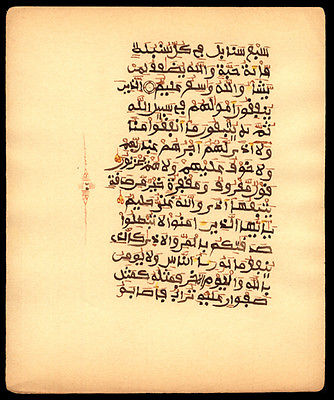 سبع سنابل في كل سنبلة
مائة حبة والله يضعف لمن
يشاء والله واسع عليم الذين
ينفقون أموالهم في سبيل الله
ثم لا يتبعون ما أنفقوا منا
ولا أذى لهم أجرهم عند ربهم
ولا خوف عليهم ولا هم يحزنون
قول معروف ومغفرة خير من صدقة
يتبعها أذى والله غني حليم
يأيها الذين ءامنوا لا تبطلوا
صدقتكم بالمن والأذى كالذي
ينفق ماله رئاء الناس ولا يؤمن
بالله واليوم الآخر فمثله كمثل
صفوان عليه تراب فأصابه